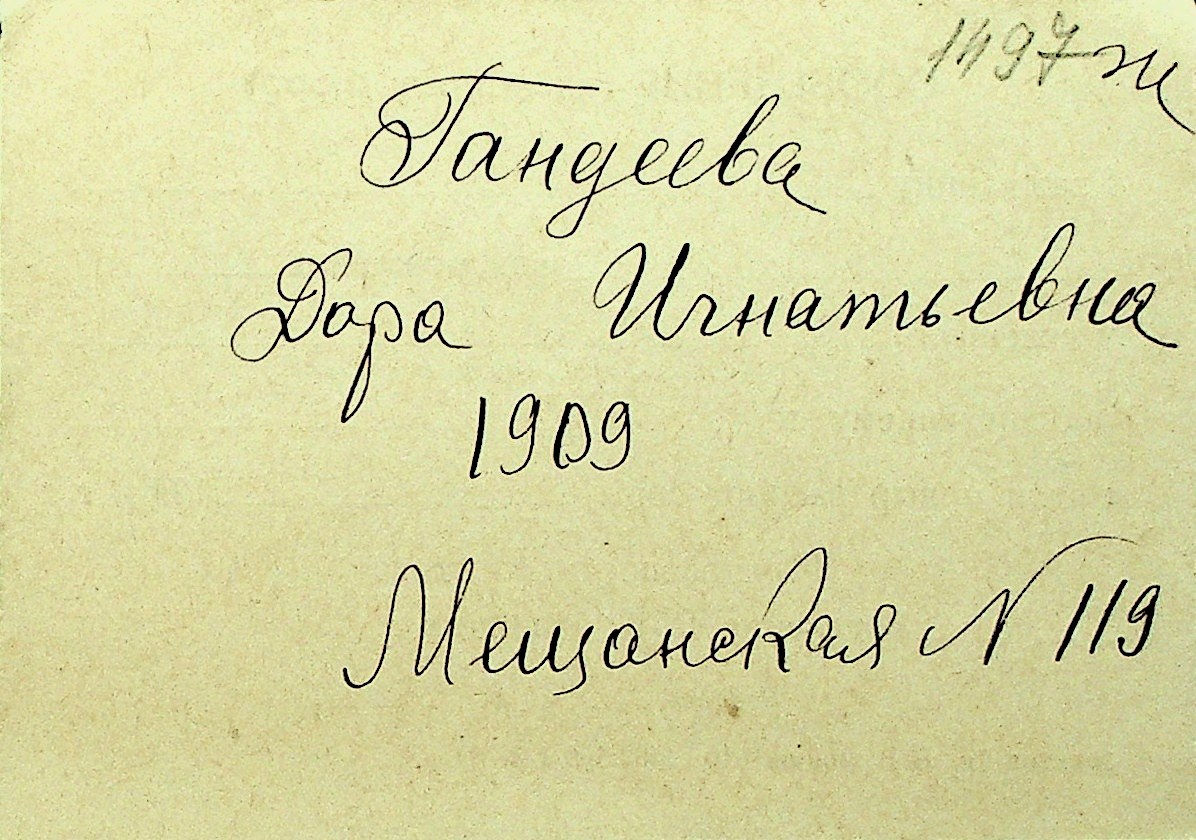 1497 ж
Гандеева
Дора Игнатьевна
1909
Мещанская N 119